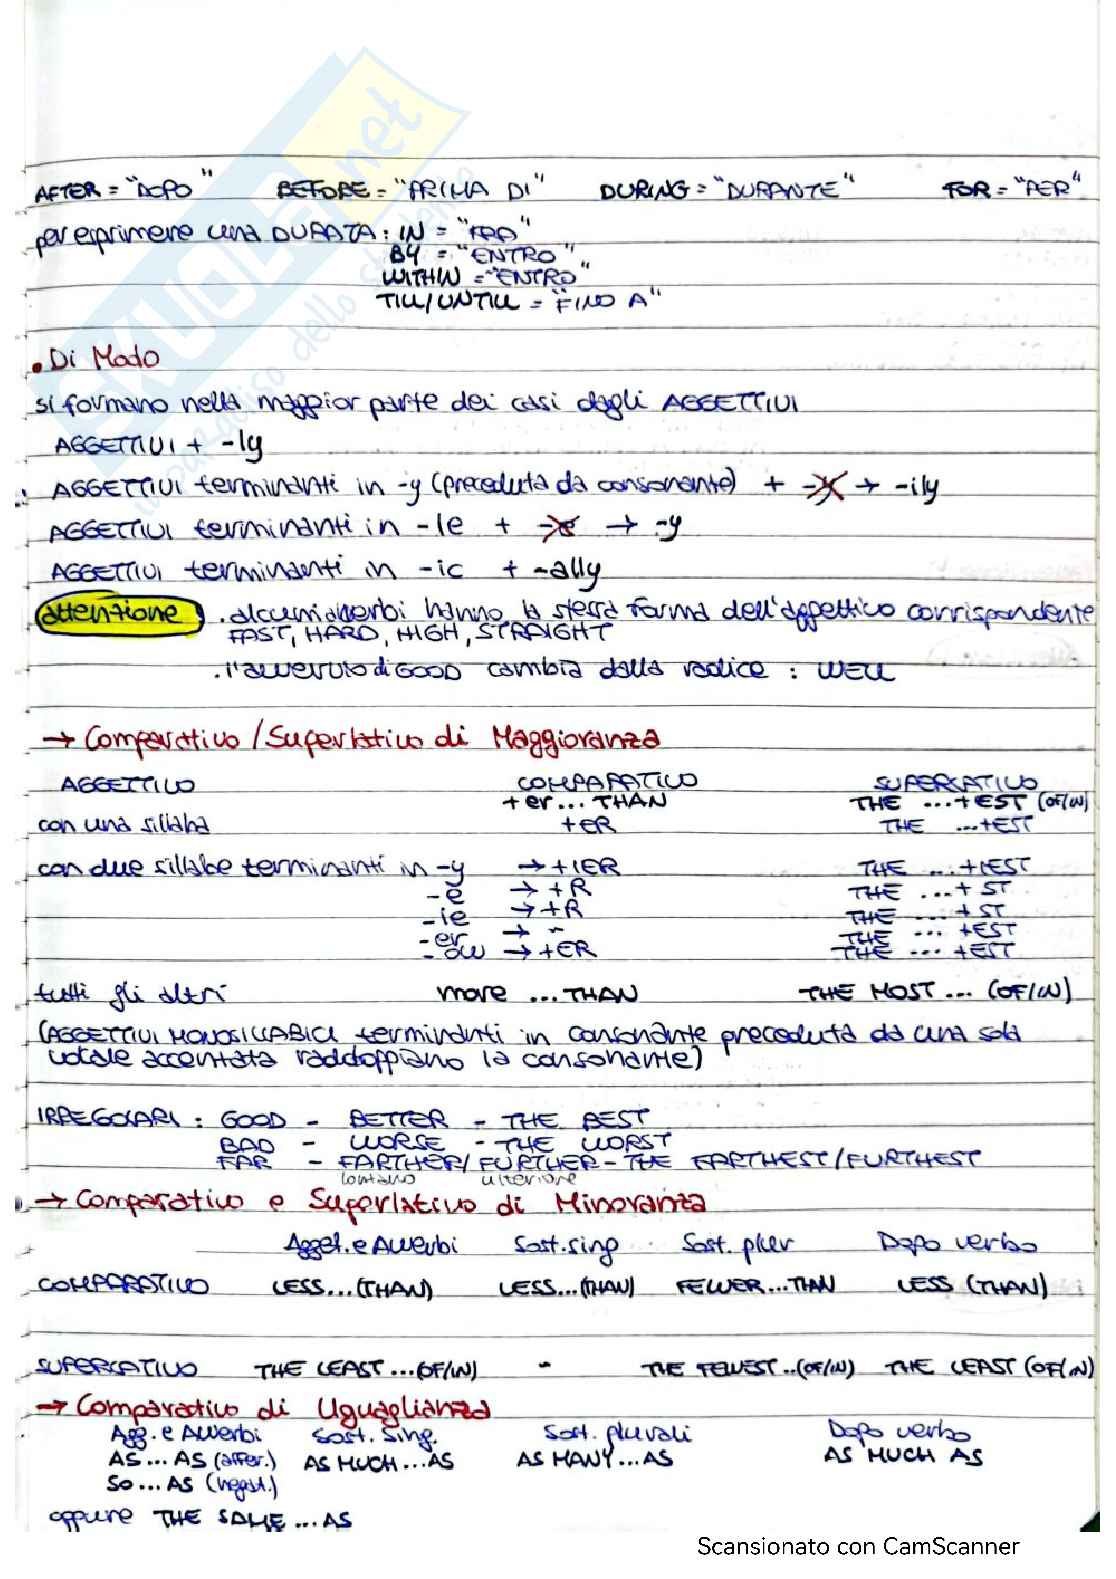 AFTER = "DOPO" BEFORE = "PRIMA DI" DURING = "DURANTE" FOR = "PER"
per esprimere una DURATA: IN = "FRA"
BY = "ENTRO"
WITHIN = "ENTRO"
TILL/UNTILL = "FINO A"
• Di Modo
si formano nella maggior parte dei casi dagli AGGETTIVI
AGGETTIVI + -ly
AGGETTIVI terminanti in -y (preceduta da consonante) + -y → -ily
AGGETTIVI terminanti in -le + -e → -y
AGGETTIVI terminanti in -ic + -ally
attenzione . alcuni avverbi hanno la stessa forma dell'aggettivo corrispondente
FAST, HARD, HIGH, STRAIGHT
. l'avverbio di GOOD cambia dalla radice : WELL
→ Comparativo / Superlativo di Maggioranza
AGGETTIVO COMPARATIVO SUPERLATIVO
+ er ... THAN THE ...+ EST (OF/IN)
con una sillaba +ER THE ...+EST
con due sillabe terminanti in -y → +IER THE ...+IEST
-e → +R THE ...+ ST
-ie → +R THE ... + ST
-er → - THE ... +EST
-ow → +ER THE ... +EST
tutti gli altri more ... THAN THE MOST ... (OF/IN)
(AGGETTIVI MONOSILLABICI terminanti in consonante preceduta da una sola
vocale accentata raddoppiano la consonante)
IRREGOLARI : GOOD - BETTER - THE BEST
BAD - WORSE - THE WORST
FAR - FARTHER/ FURTHER - THE FARTHEST/FURTHEST
lontano ulteriore
→ Comparativo e Superlativo di Minoranza
Agget. e Avverbi Sost. sing Sost. plur Dopo verbo
COMPARATIVO LESS...(THAN) LESS...(THAN) FEWER...THAN LESS (THAN)
SUPERLATIVO THE LEAST ...(OF/IN) - THE FEWEST...(OF/IN) THE LEAST (OF/IN)
→ Comparativo di Uguaglianza
Agg. e Avverbi Sost. Sing. Sost. plurali Dopo verbo
AS ... AS (affer.) AS MUCH ... AS AS MANY ... AS AS MUCH AS
SO ... AS (negat.)
oppure THE SAME ... AS
Scansionato con CamScanner
SKUOLA.net
il paradiso dello studente